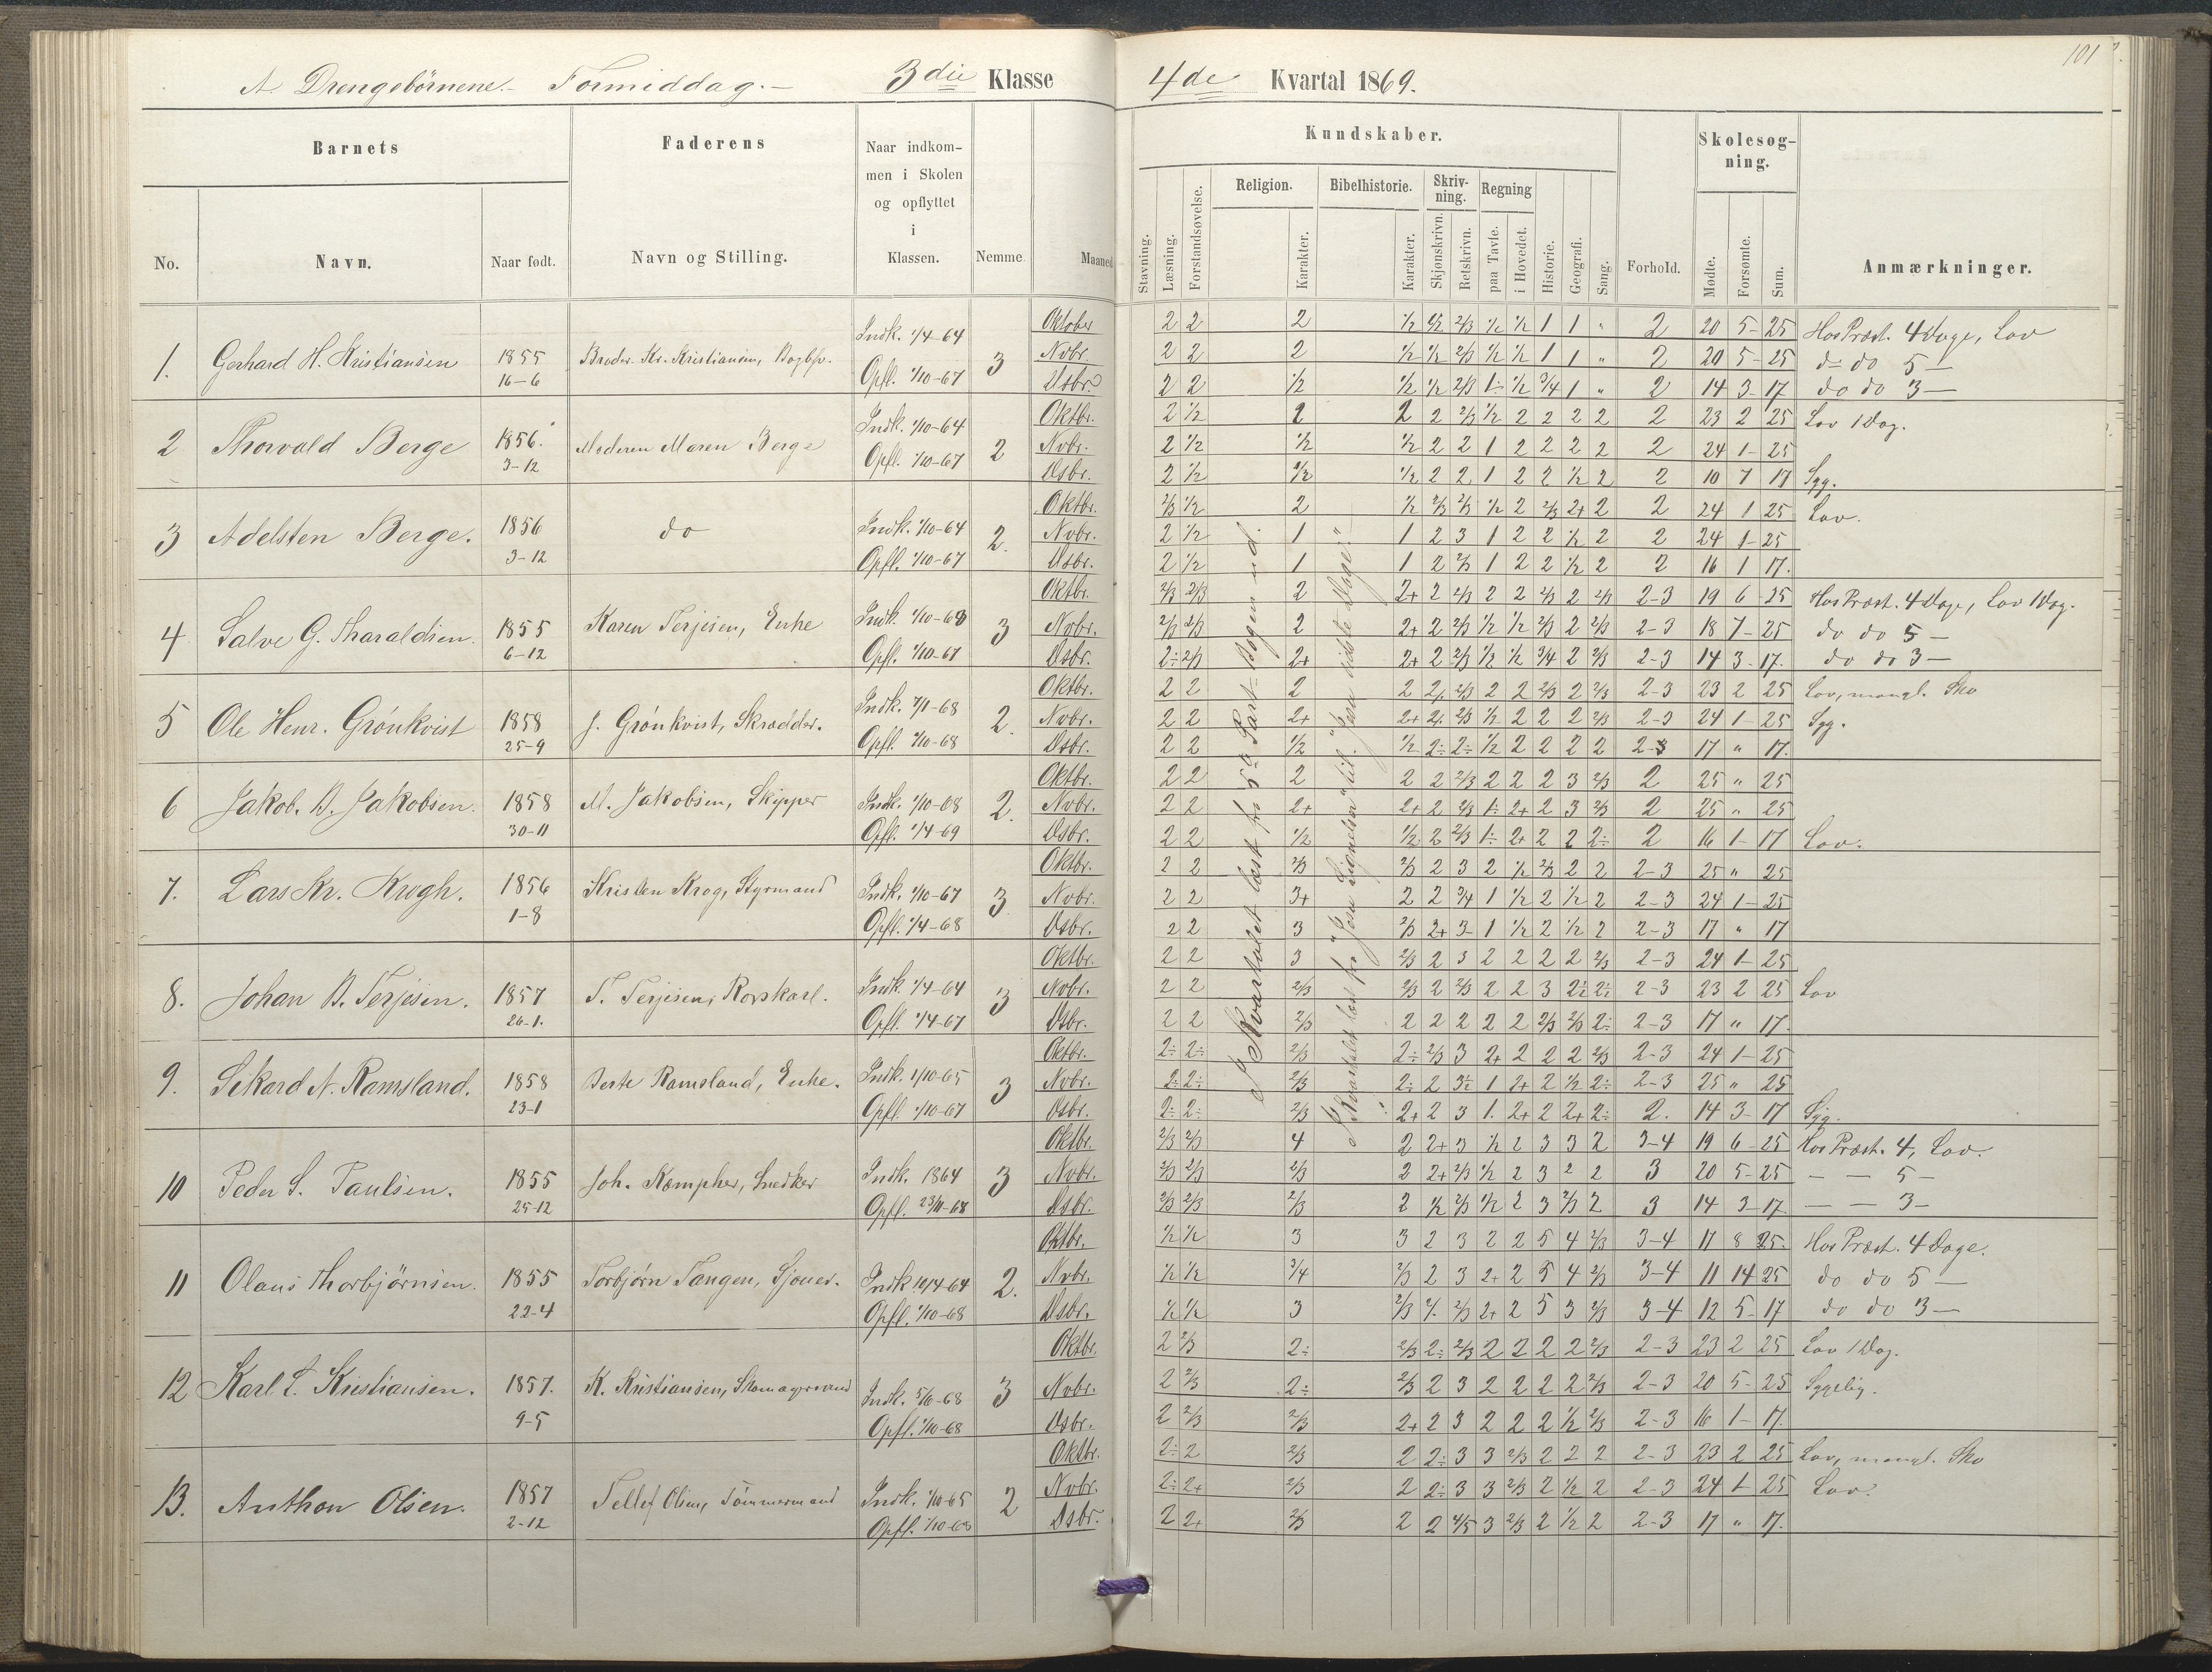 101
A. Drengebörnene. - Formiddag. - 3die Klasse 4de Kvartal 1869.
Barnets Faderens Naar indkommen i Skolen og opflyttet i Klassen. Nemme Maaned Kundskaber. Forhold. Skolesøgning. Anmærkninger.
No. Navn. Naar født. Navn og Stilling. Stavning. Læsning. Forstandsøvelse. Religion. Karakter. Bibelhistorie. Karakter. Skrivning. Skjønskrivn. Retskrivn. Regning paa Tavle. i Hovedet. Historie. Geografi. Sang. Mødte. Forsømte. Sum.
1. Gerhard H. Kristiansen 1855 16-6 Broder Kr. Kristiansen, Indk. 1/4-64 Opfl. 1/10-67 3
Oktober 2 2 2 1/2 1/2 2/3 1/2 1/2 1 1 " 2 20 5 25 Hos Præst. 4 Dage, Lov
Nvbr. 2 2 2 1/2 1/2 2/3 1/2 1/2 1 1 " 2 20 5 25 do do 5 —
Dsbr. 2 2 1/2 1/2 1/2 2/3 1÷ 1/2 3/4 1 " 2 14 3 17 do do 3 —
2 Thorvald Berge 1856 3-12 Moderen Maren Berge Indk. 1/10-64 Opfl. 1/10-67 2
Oktbr. 2 1/2 2 2 2 2/3 1/2 2 2 2 2 2 23 2 25 Lov 1 Dag.
Nvbr. 2 1/2 1/2 1/2 2 2 1 2 2 2 2 2 24 1 25
Dsbr. 2 1/2 1/2 1/2 2 2 1 2 2 1/2 2 2 10 7 17 Syg.
3 Adelsten Berge. 1856 3-12 do Indk. 1/10-64 Opfl. 1/10-67 2.
Oktbr. 2/3 1/2 2 1/2 2/3 2/3 1/2 2 2/3 2+ 2 2 24 1 25 Lov.
Nvbr. 2 1/2 1 1 2 3 1 2 2 1/2 2 2 24 1 25
Dsbr. 2 1/2 1 1 2 2/3 1 2 2 1/2 2 2 16 1 17.
4 Salve G. Tharaldsen. 1855 6-12 Karen Terjesen, Enke Indk. 1/10-63 Opfl. 1/10-67 3
Oktbr. 2/3 2/3 2 2+ 2 2/3 2 2 2/3 2 2/3 2-3 19 6 25 Hos Præst. 4 Dage, Lov 1 Dag.
Nvbr. 2/3 2/3 2 2+ 2 2/3 1/2 1/2 2/3 2 2/3 2-3 18 7 25 do do 5 —
Dsbr. 2÷ 2/3 2+ 2+ 2 2/3 1/2 1/2 3/4 2 2/3 2-3 14 3 17. do do 3 —
5 Ole Henr. Grönkvist 1858 25-9 J. Grönkvist, Skrædder. Indk. 7/1-68 Opfl. 1/10-68 2.
Oktbr. 2 2 2 2 2 2/3 2 2 2/3 2 2/3 2-3 23 2 25 Lov, mangl. Sko
Nvbr. 2 2 2+ 2+ 2 2/3 1/2 2 2 2 2/3 2-3 24 1 25 Syg.
Dsbr. 2 2 1/2 1/2 2÷ 2÷ 1/2 2 2 2 2 2-3 17 " 17.
6 Jakob. B. Jakobsen. 1858 30-11 M. Jakobsen, Skipper Indk. 1/10-68 Opfl. 1/4-69 2.
Oktbr. 2 2 2 2 2 2/3 2 2 2 3 2/3 2 25 " 25
Nvbr. 2 2 2+ 2+ 2 2/3 1÷ 2+ 2 3 2/3 2 25 " 25
Dsbr. 2 2 1/2 1/2 2 2/3 1÷ 2+ 2 2 2÷ 2 16 1 17 Lov.
7. Lars Kr. Krogh. 1856 1-8 Kristen Krog, Styrmand Indk. 1/10-67 Opfl. 1/4-68 3
Oktbr. 2 2 2/3 2/3 2 3 2 1/2 2/3 2 2 2-3 25 " 25
Nvbr. 2 2 3+ 2 2 3/4 1 1/2 2 1/2 2 2-3 24 1 25
Dsbr. 2 2 3 2/3 2+ 3 1 1/2 2 1/2 2 2-3 17 " 17
8. Johan B. Terjesen. 1857 26-1. T. Terjesen, Rorskarl. Indk. 1/4-64 Opfl. 1/4-67 3
Oktbr. 2 2 3 2/3 2 3 2 2 2 2 2/3 2-3 24 1 25
Nvbr. 2 2 2/3 2/3 2 2/3 2 2 3 2÷ 2÷ 2-3 23 2 25 Lov
Dsbr. 2 2 2/3 2 2 2 2 2 2/3 2/3 2÷ 2-3 17 " 17.
9. Sikard N. Ramsland. 1858 23-1 Berte Ramsland, Enke. Indk. 1/10-65 Opfl. 1/10-67 3
Oktbr. 2÷ 2÷ 2/3 2÷ 2/3 3 2+ 2 2 2 2/3 2-3 24 1 25
Nvbr. 2÷ 2÷ 2/3 2÷ 2 3÷ 1 2+ 2 1/2 2÷ 2-3 25 " 25
Dsbr. 2÷ 2÷ 2/3 2+ 2 3 1. 2+ 2 2+ 2÷ 2. 14 3 17 Syg.
10 Peder S. Paulsen. 1855 25-12 Joh. Kæmpher, Snedker Indk. 1864 Opfl. 23/11-68 3
Oktbr. 2/3 2/3 4 2 2+ 3 1/2 2 3 3 2 3-4 19 6 25 Hos Præst. 4, Lov.
Nvbr. 2/3 2/3 2/3 2 2+ 2/3 1/2 2 3 2 2 3 20 5 25 — — 5 —
Dsbr. 2/3 2/3 2/3 2 1/2 2/3 1/2 2 3 2/3 2 3 14 3 17. — — 3 —
11 Olaus Thorbjörnsen. 1855 22-4 Torbjørn Tangen, Sjouer. Indk. 10/4-64 Opfl. 1/10-68 2.
Oktbr. 1/2 1/2 3 3 2 3 2 2 5 4 2/3 3-4 17 8 25. Hos Præst. 4 Dage.
Nvbr. 1/2 1/2 3/4 2/3 2 3 2+ 2 5 4 2/3 3-4 11 14 25 do do 5 —
Dsbr. 1/2 1/2 3 2/3 2/3 2+ 2 5 3 2/3 3-4 12 5 17 do do 3 —
12 Karl L. Kristiansen. 1857. 9-5 K. Kristiansen, Skomagersvend Indk. 5/10-68 Opfl. 1/10-68 3
Oktbr. 2 2/3 2÷ 2/3 2÷ 2/3 2 2 2 2 2/3 2-3 23 2 25 Lov 1 Dag.
Nvbr. 2 2/3 2÷ 2/3 2 3 2 2 2 2 2/3 2-3 20 5 25 Sygelig.
Dsbr. 2 2/3 2/3 2+ 2 3 2 2 2 1/2 2/3 2-3 16 1 17.
13. Anthon Olsen. 1857 2-12 Tellef Olsen, Tömmermand Indk. 1/10-65 Opfl. 1/10-68 2
Oktbr. 2÷ 2 2/3 2 2÷ 3 3 2/3 2 2 2 2-3 23 2 25 Lov, mangl. Sko
Nvbr. 2÷ 2+ 2/3 2 2÷ 3 3 2/3 2 1/2 2 2-3 24 1 25 Lov.
Dsbr. 2 2+ 2/3 2 2 4/5 3 2/3 2 1/2 2 2-3 17 " 17.
I Kvartalet læst fra 5te Part Bogen ud.
I Kvartalet læst fra "Jesu Lignelser" til "Jesu sidste Dage."